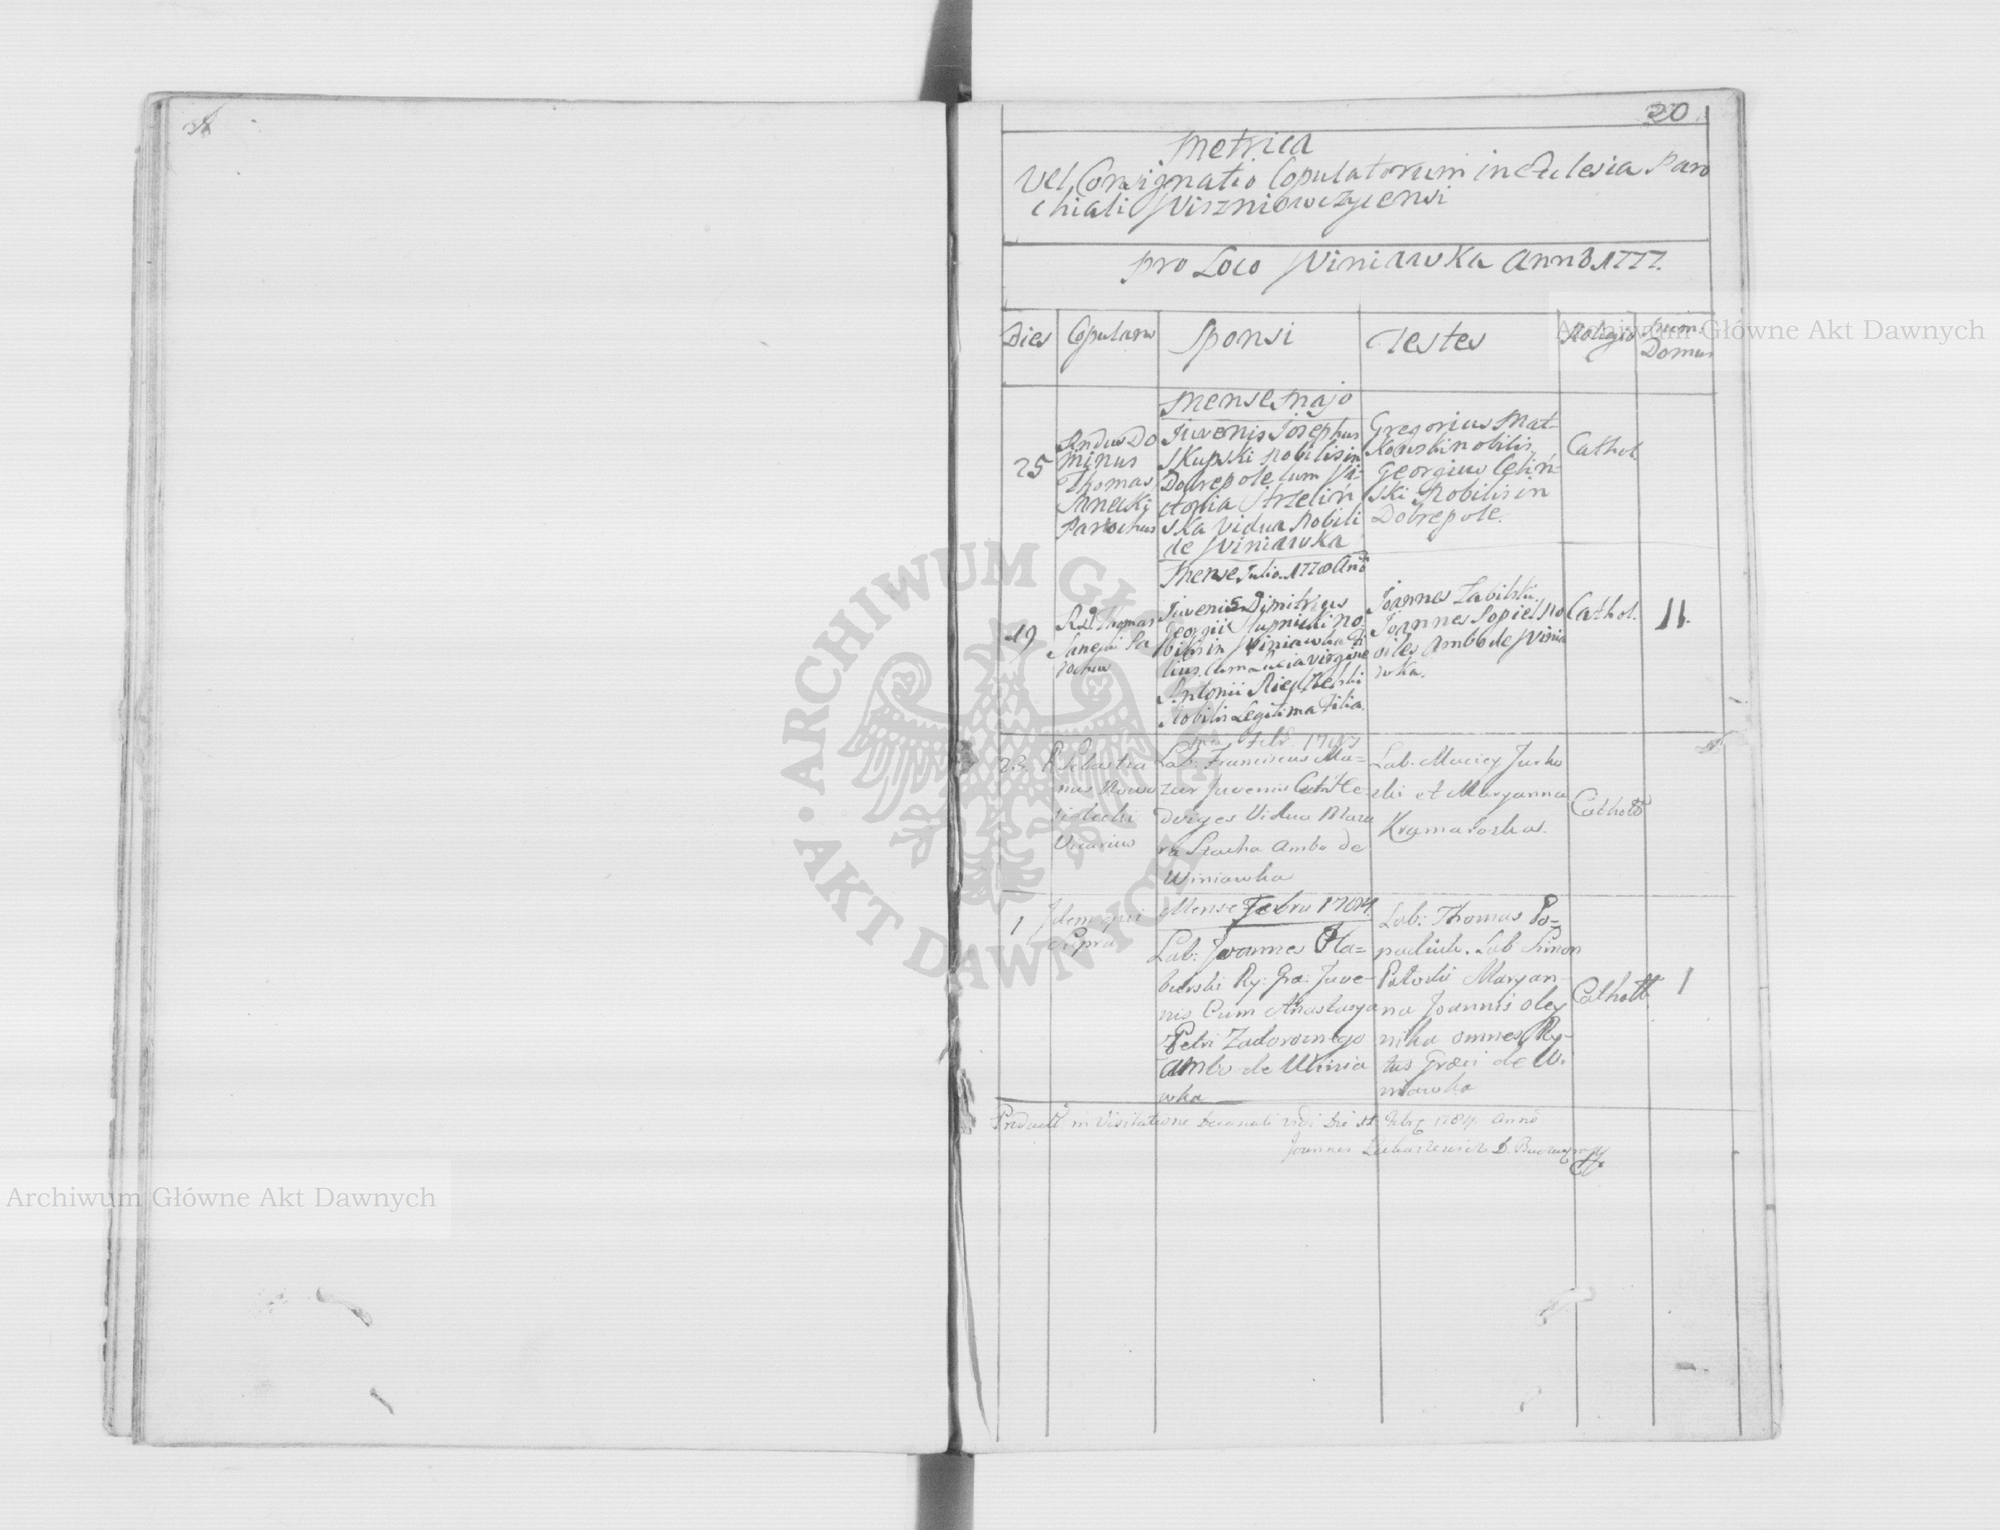 20
Metrica
Vel Consignatio Copulatorum in Eclesia Paro
chiali Wiszniowczycensi
pro Loco Winiawka Anno 1777.
Dies
Copulans
Sponsi
Testes
Religio
Num. Domus
Mense Majo
25
Andus Do
minus
Thomas
Sanecki
Parochus
Iuvenis Josephus
Skupski Nobilis in
Dobrepole cum Vi-
ctoria Strzeliń
ska Vidua Nobili
de Winiawka
Gregorius Mat-
kowski nobilis,
Georgius Celiń-
ski Nobilis in
Dobrepole.
Cathol.
Mense Julio 1778 Ano
19
Rd Thomas
Sanecki Pa
rochus
Iuvenis Dimitrius
Georgii Slupnicki no
bilis in Winiawka Fi
lius, cum Lucia virgine
Antonii
Nobilis Legitima Filia.
Joannes Zabilski.
Joannes Sopiel No
biles Ambo de Winia
wka.
Cathol.
11.
23
P. Sebastia
nus Nowo
sielecki
Vicarius
Lab: Franciscus Ma-
zur Juvenis Cum He-
dviges Vidua Mazu
ra Stacha Ambo de
Winiawka
Lab. Maciey Jurko
ski et Maryanna
Kramaroska.
Catholi
Mense Febru 1784.
1
Idem qui
supra
Lab: Joannes Ha-
bierski Ry: Gra: Juve-
nis Cum Anastasya
Petri Zadoroznego
Ambo de Winia
wka
Lab: Thomas Po-
padiuk. Lab Simon
Patoski Maryan-
na Joannis oley
nika omnes Ry-
tus Graeci de Wi
niawka
Catholi
1
Product in Visitatione Decanali Die 11 1784 Anno
Joannes Lukasiewicz D. Buczac
Archiwum Główne Akt Dawnych
Archiwum Główne Akt Dawnych
ARCHIWUM GŁÓWNE
AKT DAWNYCH